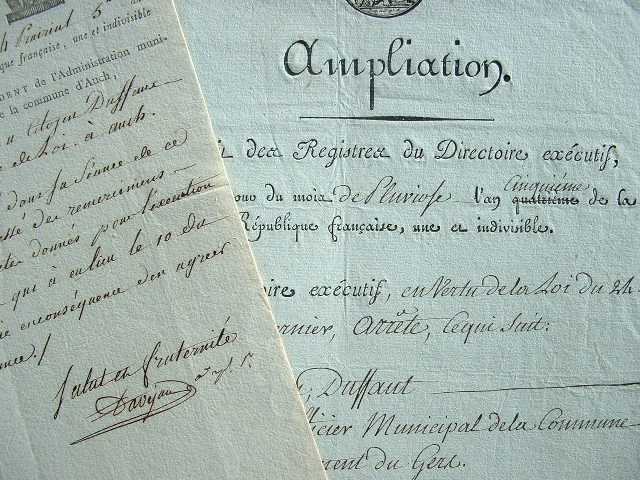 Prairial 5
que française, une et indivisible
DENT de l'Administration muni-
e la commune d'Auch,
Citoyen Duffaut
de Loi. à auch.
dans sa Séance de ce
des remerciemens
donnés pour l'execution
qui a eu lieu le 10 du
en conséquence d'en agreer
Salut et fraternité
Ampliation.
des Registres du Directoire exécutif,
du mois de Pluviose l'an Cinquième quatrième de la
République française, une et indivisible.
oire exécutif, en Vertu de la Loi du 24
ernier, Arrête, Ce qui Suit:
Duffaut
icier Municipal de la Commune
ment du Gers.